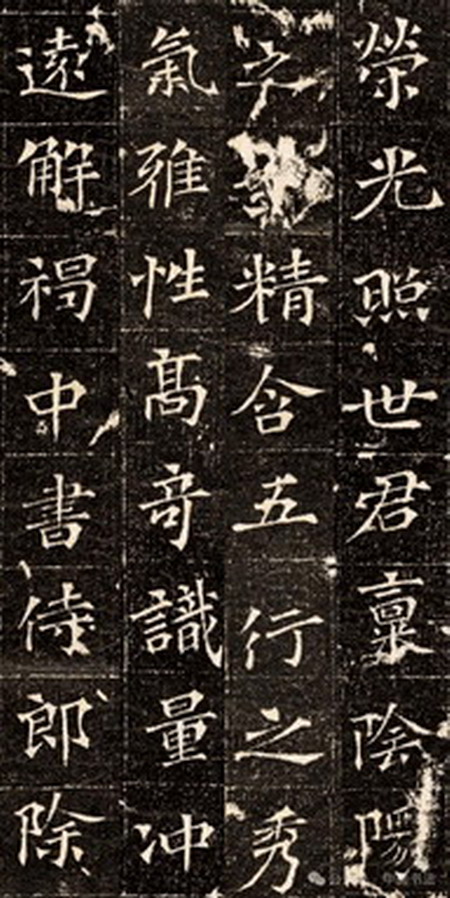 榮光照世君稟陰陽
精含五行之秀
氣雅性髙竒識量沖
遠解褐中書侍郎除